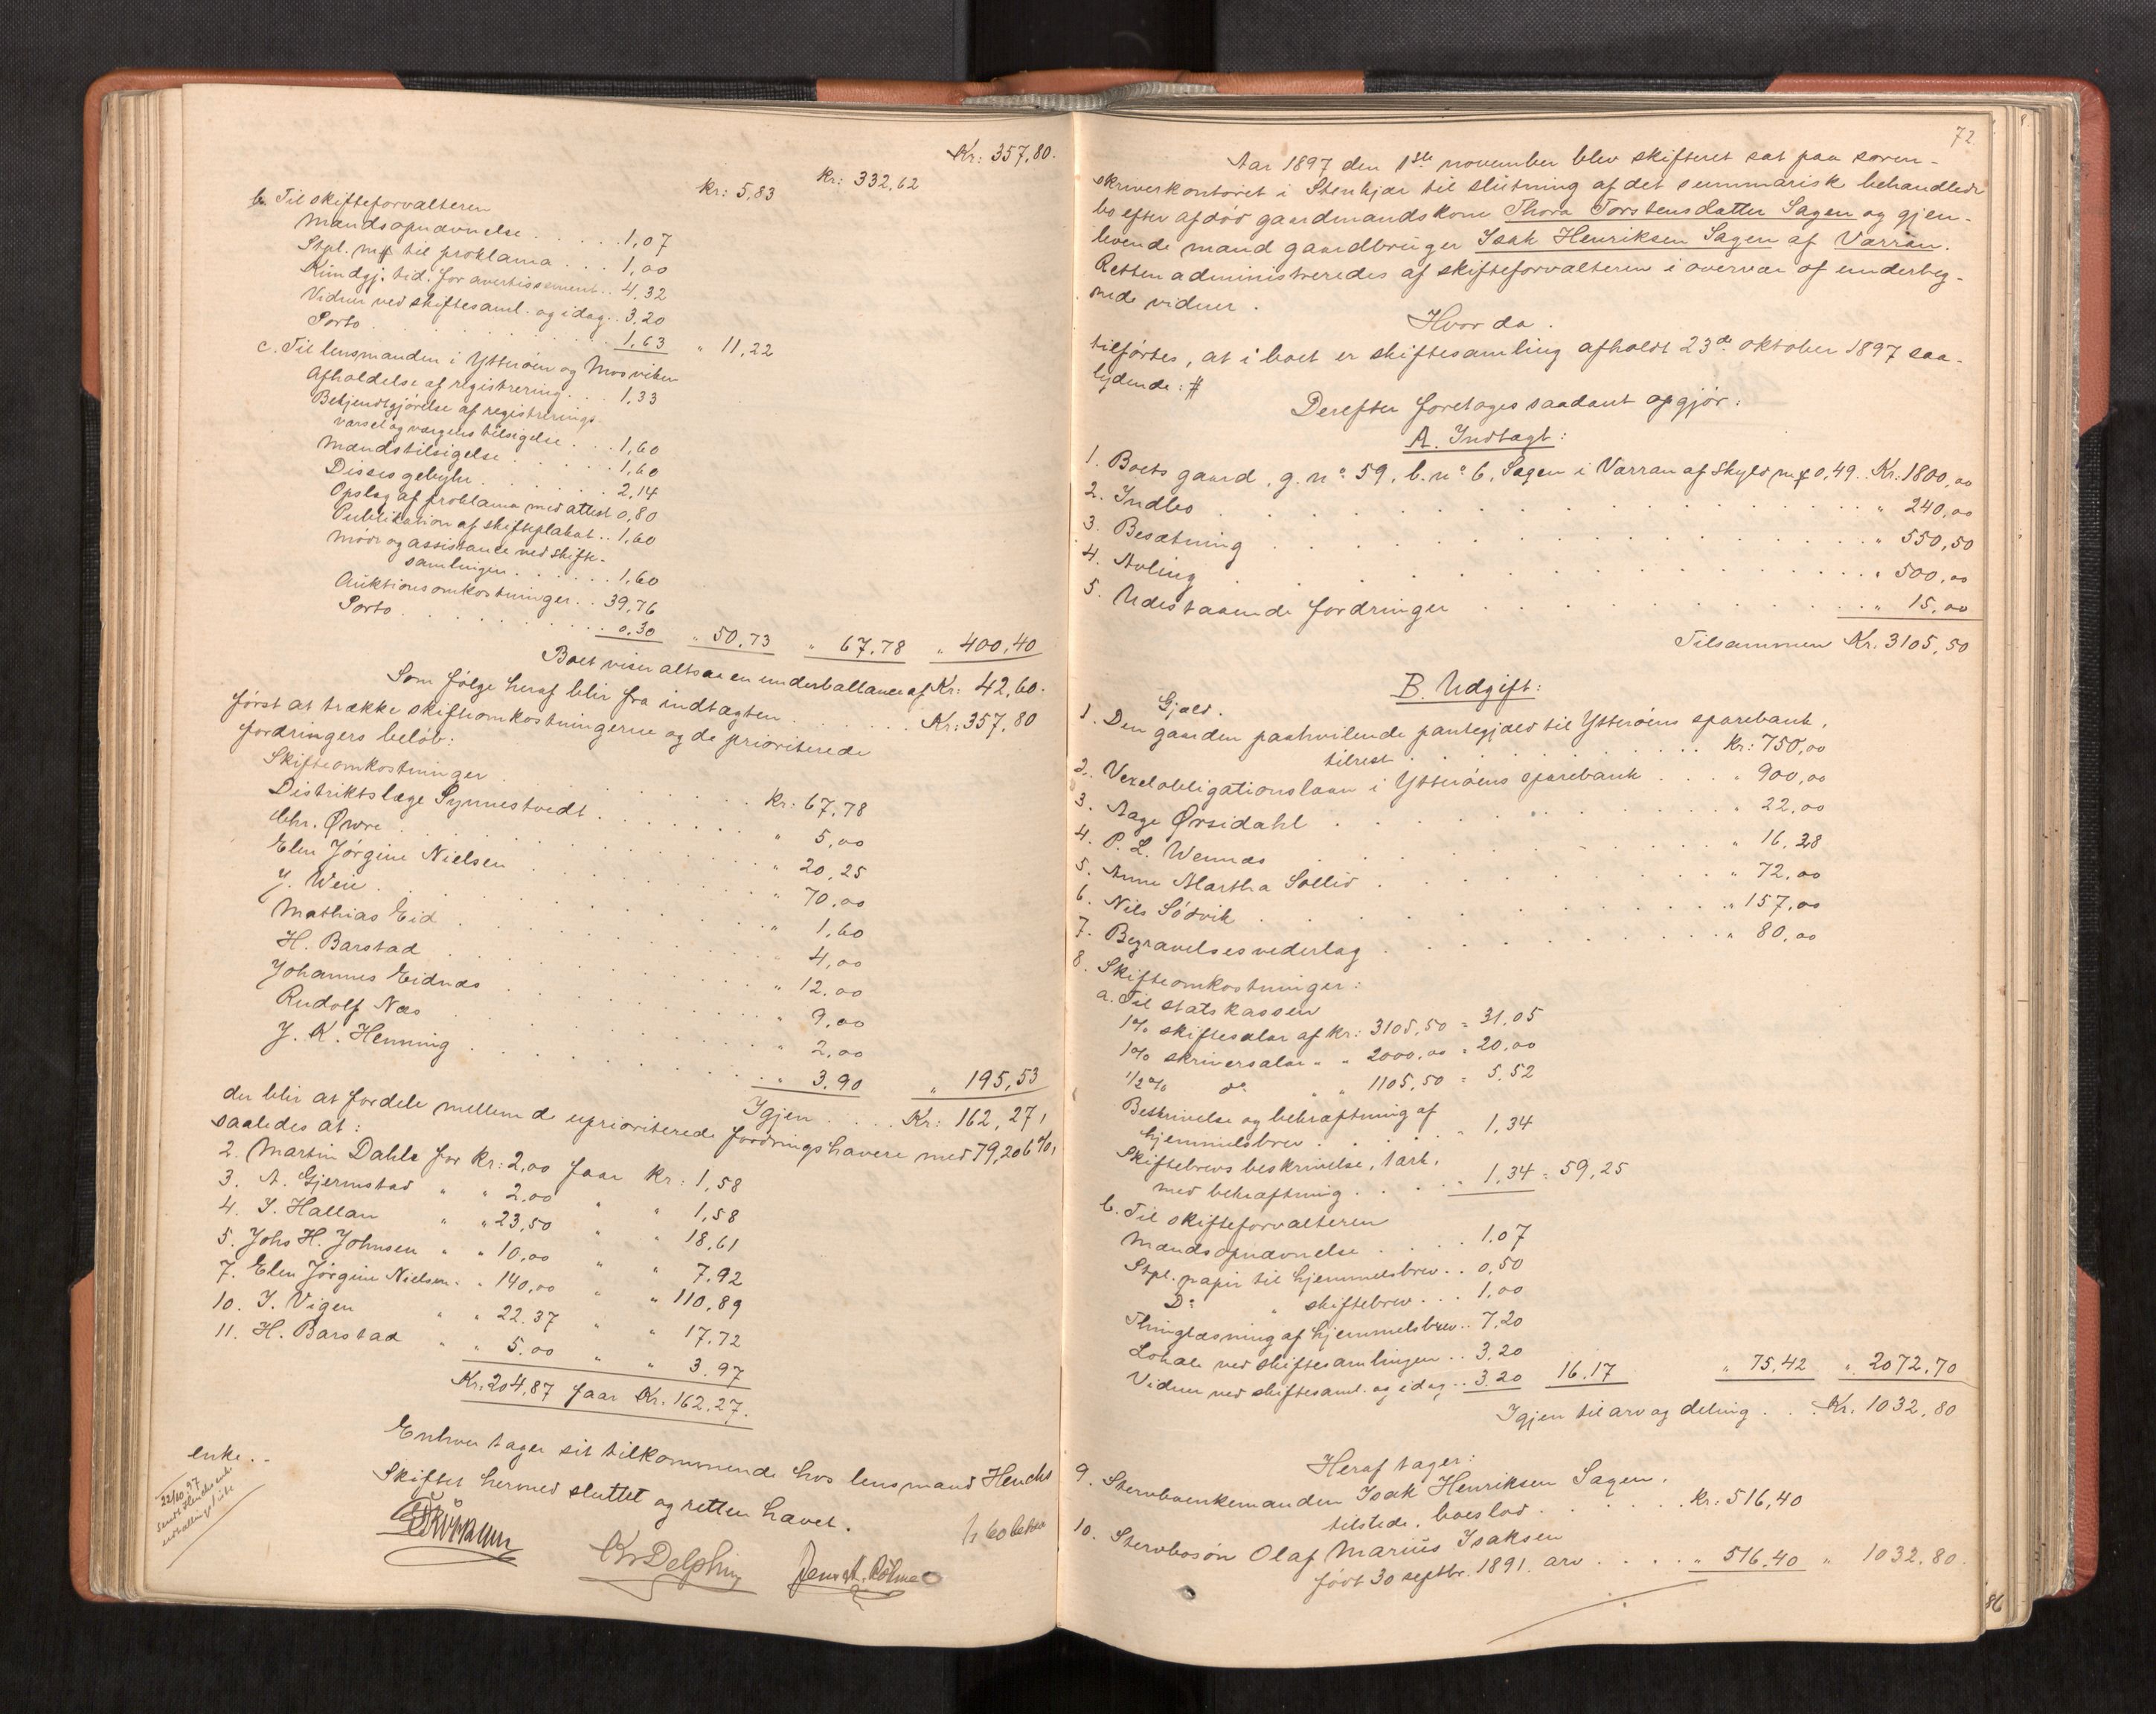 Kr: 357,80.
kr: 5,83 kr: 332,62
b. Til skifteforvalteren
Mandsopnævnelse . . . . . 1,07
Stpl. mrk til proklama . . . 1,00
Kundgj. tid. for avertissement . . 4,32
Vidner ved skiftesaml. og idag . . 3,20
Porto . . . . . . . . 1,63 " 11,22
c. Til lensmanden i Ytterøen og Mosviken
Afholdelse af registrering . . . 1,33
Bekjendtgjørelse af registrerings-
varsel og værgens tilsigelse . . . 1,60
Mandstilsigelse . . . . . . 1,60
Disses gebyhr . . . . . . . 2,14
Opslag af proklama med attest 0,80
Publikation af skifteplakat . . 1,60
Møde og assistance ved skifte-
samlingen . . . . . . 1,60
Auktionsomkostninger . . 39,76
Porto . . . . . . . . . . 0,30 " 50,73 " 67,78 " 400,40
Boet viser altsaa en underballance af Kr: 42,60.
Som følge heraf blir fra indtægten . . . . . . Kr: 357,80
først at trække skifteomkostningerne og de prioriterede
fordringers beløb:
Skifteomkostninger . . . . . . . . kr: 67,78
Distriktslæge Synnestvedt . . . . . . " 5,00
Chr. Øwre . . . . . . . . . " 20,25
Elen Jørgine Nielsen . . . . . . " 70,00
J. Weie . . . . . . . . . " 1,60
Mathias Eid . . . . . . . . " 4,00
H. Barstad . . . . . . . . " 12.00
Johannes Eidnæs . . . . . . . " 9,00
Rudolf Næs . . . . . . . . " 2,00
J. K. Henning . . . . . . . . " 3.90 " 195,53
Igjen . . . . Kr: 162,27,
der blir at fordele mellem de uprioriterede fordringshavere med 79,206 %,
saaledes at:
2. Martin Dahle for kr: 2,00 faar kr: 1,58
3. A. Gjermstad " " 2,00 " " 1,58
4. I. Hallan " " 23,50 " " 18,61
5. Johs H. Johnsen " " 10,00 " " 7.92
7. Elen Jørgine Nielsen " " 140,00 " " 110,89
10. I. Vigen " " 22.37 " " 17.72
11. H. Barstad " " 5.00 " " 3.97
Kr: 204,87 faar Kr. 162,27.
Enhver tager sit tilkommende hos lensmand Henchs
enke. -
Skiftet hermed sluttet og retten hævet.
22/10 97
Kr Delphin
72
Aar 1897 den 1ste november blev skifteret sat paa soren-
skriverkontoret i Stenkjær til slutning af det summarisk behandlede
bo efter afdød gaardmandskone Thora Torstensdatter Sagen og gjen-
levende mand gaardbruger Isak Henriksen Sagen af Varran.
Retten administreredes af skifteforvalteren i overvær af underteg-
nede vidner.
Hvor da.
tilførtes, at i boet er skiftesamling afholdt 23de oktober 1897 saa-
lydende: #
Derefter foretages saadant opgjør:
A. Indtægt:
1. Boets gaard, g. no 59, b. no 6, Sagen i Varran af Skyld mk 0,49 . . Kr: 1800,00
2. Indbo . . . . . . . . . . " 240,00
3. Besætning . . . . . . . . . " 550,50
4. Avling . . . . . . . . . . " 500,00
5. Udestaaende fordringer . . . . . . . " 15,00
Tilsammen Kr. 3105,50
B. Udgift:
Gjæld.
1. Den gaarden paahvilende pantegjæld til Ytterøens sparebank,
tilrest . . . . . . . . . kr: 750,00
2. Vexelobligationslaan i Ytterøens sparebank . . . " 900,00
3. Aage Ørsidahl . . . . . . . . " 22,00
4. P. L. Wennæs . . . . . . . . " 16,28
5. Anne Martha Sollid . . . . . . . " 72,00
6. Nils Sødvik . . . . . . . . " 157,00
7. Begravelsesvederlag . . . . . . . " 80,00
8. Skifteomkostninger:
a. Til statskassen
1% skiftesalar af kr: 3105,50 = 31,05
1% skriversalar " " 2000,00 = 20,00
1/2% do " " 1105,50 = 5,52
Beskrivelse og bekræftning af
hjemmelsbrev . . . . . " 1,34
Skiftebrevs beskrivelse, 1 ark,
med bekræftning . . . . " 1,34 = 59,25
b. Til skifteforvalteren
Mandsopnævnelse . . . . 1.07
Stpl. papir til hjemmelsbrev . . 0,50
Do " skiftebrev . . . 1,00
Thinglæsning af hjemmelsbrev . . 7,20
Lokale ved skiftesamlingen . . 3,20
Vidner ved skiftesaml. og idag . . 3.20 16,17 " 75,42 " 2072,70
Igjen til arv og deling . . . Kr. 1032,80
Heraf tager:
9. Stervboenkemanden Isak Henriksen Sagen,
tilstede, boeslod . . . . . . kr: 516,40
10. Stervbosøn Olaf Marius Isaksen
født 30 septbr. 1891. arv . . . . " 516,40 " 1032,80.
86